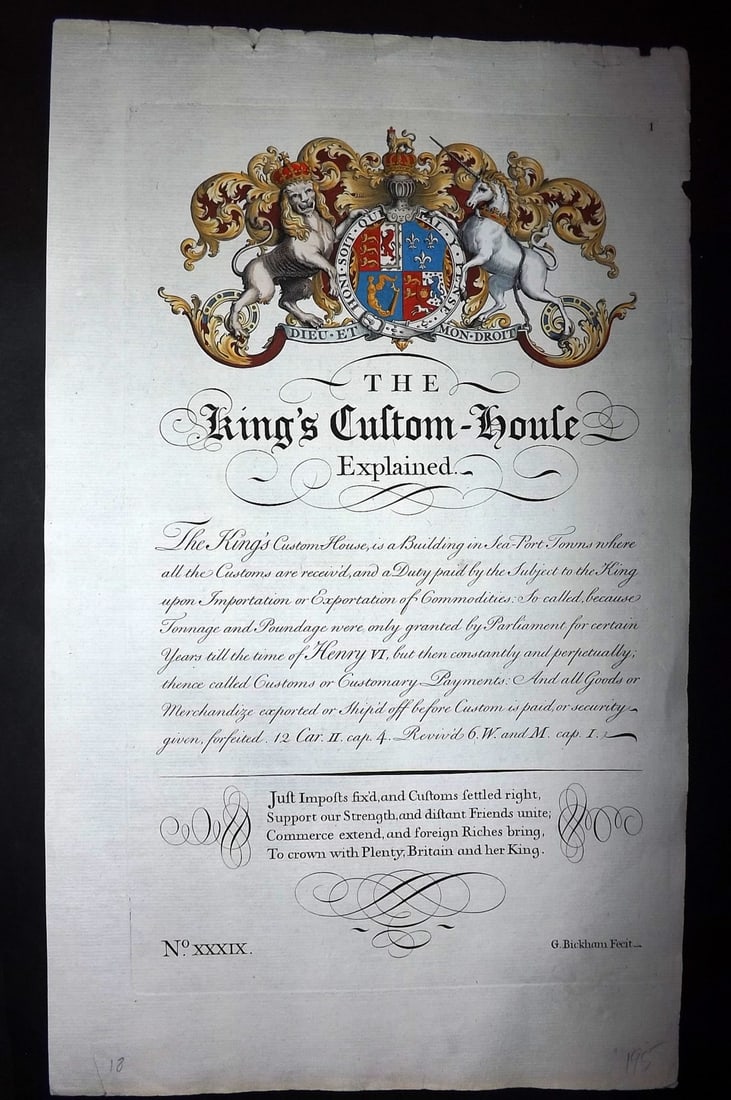 1
HONI·SOIT·QUI MAL·Y·PENSE
DIEU·ET MON·DROIT
THE
King's Cuſtom-Houſe
Explained.
The King's Custom-House, is a Building in Sea-Port Towns where
all the Customs are receiv'd, and a Duty paid by the Subject to the King
upon Importation or Exportation of Commodities: So called, because
Tonnage and Poundage were only granted by Parliament for certain
Years till the time of Henry VI, but then constantly and perpetually;
thence called Customs or Customary Payments: And all Goods or
Merchandize exported or Ship'd off before Custom is paid, or security
given, forfeited. 12 Car. II. cap. 4. Reviv'd 6. W. and M. cap. 1.
Juſt Impoſts fix'd, and Cuſtoms ſettled right,
Support our Strength, and diſtant Friends unite;
Commerce extend, and foreign Riches bring,
To crown with Plenty, Britain and her King.
No. XXXIX.
G. Bickham Fecit
18
195